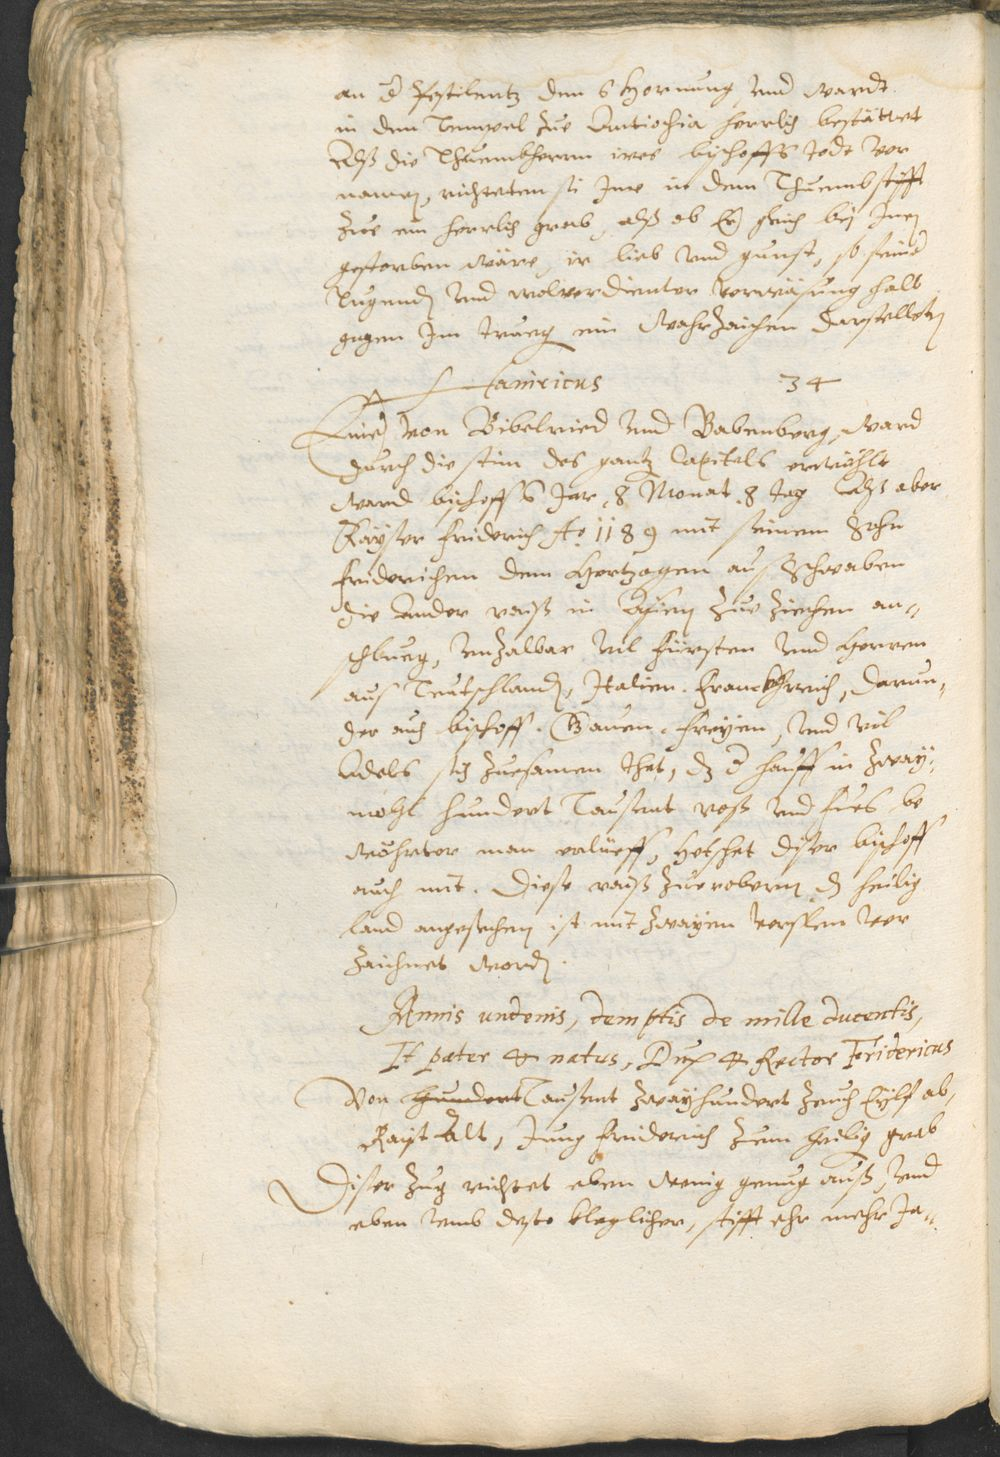 an d Pestilentz den 6 Hornung, und wardt
in dem Tempel zue Antiochia herrlich bestättet
Alß die Thuembherrn ires byschoffs todt ver
namen, richteten si Ime in dem Thuembstifft
zue ein herrlich grab, alß ob Er frich bej Inen
gestorben wäre, ir lieb und gunst, so seind
Tugend und wolverdienter verwäsung halb
gegen Im trueg ein Wahrzaichen darstellete
Hainricus 34
Ains von Bibelried und Babenberg, ward
durch die stim des gantz Capitels erwöhlt
ward byschoff 6 Jar 8 Monat 8 tag Alß aber
Kayser Friderich Ao 1189 mit seinem Sohn
Friderichen dem Hertzogen auß Schwaben
die Ander raiß in Asien zue ziechen an„
schlueg, unzalbar vil Fürsten und Herren
aus Teutschland, Italien. Franckhreich, darun„
der auch byschoff. Graven. Freyen, und vil
Adels sich zuesamen thet, dz d hauff in zway„
möhl hundert Tausent roß und fues be
wöhrter man verlüeff, Het het diser byschoff
auch mit. Diese raiß zueroberen dz heilig
land angesechen ist mit zwayen verslen ver
zaichnet word.
Annis undenis, demptis de mille ducentis,
It pater & natus, Dux & Rector Fridericus
Von hundert Tausent zwayhundert zeuch Eylf ab,
Raist Alt, Jung Friderich zum heilig grab
Diser zug richtet eben wenig genueg auß, und
eben umb desto kleglicher, stifft ehr mehr Ja„